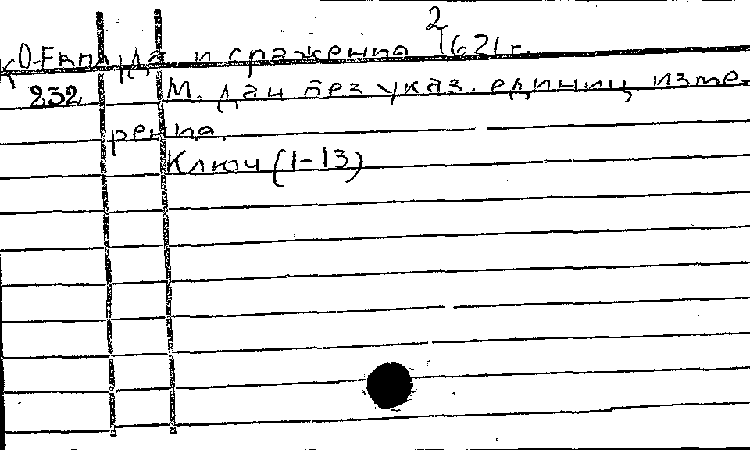 2
и сражению 1621 г.
232 М. дан без указ. единиц изме-
рения.
Ключ (1-13)